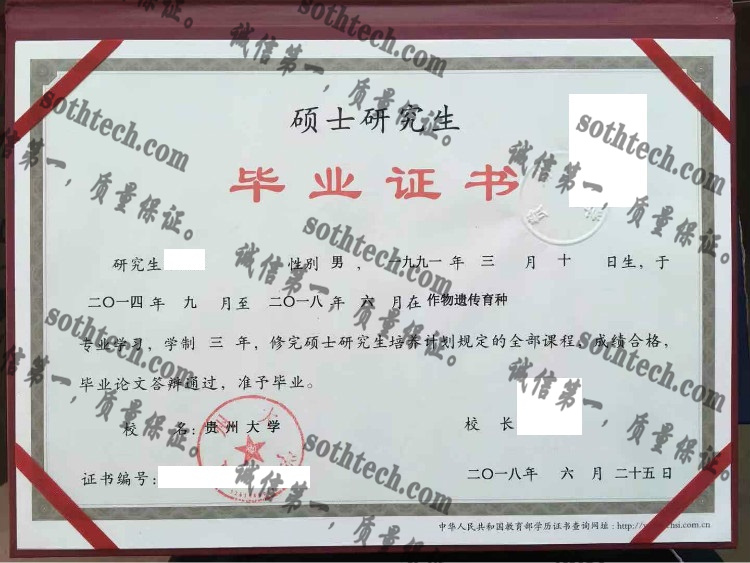 硕士研究生
毕业证书
研究生 性别 男 ， 一九九一 年 三 月 十 日生，于
二〇一四年 九 月至 二〇一八年 六 月在 作物遗传育种
专业学习，学制 三 年，修完硕士研究生培养计划规定的全部课程，成绩合格，
毕业论文答辩通过，准予毕业。
校 名：贵州大学
校 长
证书编号：
二〇一八年 六 月 二十五日
中华人民共和国教育部学历证书查询网址：http://
chsi.com.cn
sothtech.com
诚信第一，质量保证。
sothtech.com
诚信第一，质量保证。
sothtech.com
诚信第一，质量保证。
sothtech.com
诚信第一，质量保证。
sothtech.com
诚信第一，质量保证。
sothtech.com
诚信第一，质量保证。
sothtech.com
诚信第一，质量保证。
sothtech.com
诚信第一，质量保证。